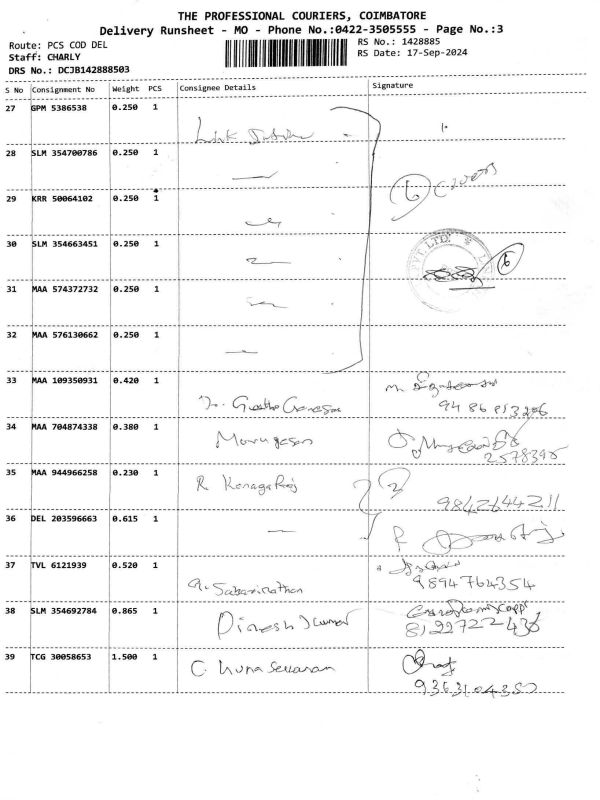 THE PROFESSIONAL COURIERS, COIMBATORE
Delivery Runsheet - MO - Phone No.:0422-3505555 - Page No.:3
Route: PCS COD DEL
RS No.: 1428885
Staff: CHARLY
RS Date: 17-Sep-2024
DRS No.: DCJB142888503
S No Consignment No Weight PCS Consignee Details Signature
27 GPM 5386538 0.250 1
28 SLM 354700786 0.250 1
6 Covers
29 KRR 50064102 0.250 1
30 SLM 354663451 0.250 1
PVT. LTD. *
6
31 MAA 574372732 0.250 1
32 MAA 576130662 0.250 1
33 MAA 109350931 0.420 1
34 MAA 704874338 0.380 1
Murugasan
35 MAA 944966258 0.230 1
R Kanagaraj 2
9842644211
36 DEL 203596663 0.615 1
37 TVL 6121939 0.520 1
9894764354
38 SLM 354692784 0.865 1
Dinesh Kumar
39 TCG 30058653 1.500 1